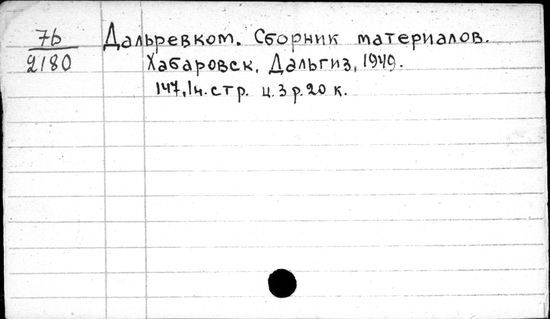 7б Дальревком. Сборник материалов.
2180 Хабаровск, Дальгиз, 1949.
147,1ч.стр. ц.3р.20 к.